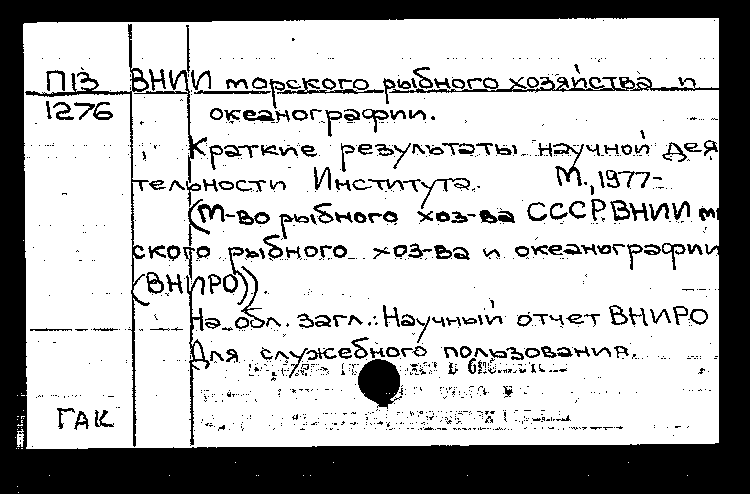 П13 ВНИИ морского рыбного хозяйства и
1276 океанографии.
Краткие результаты научной дея
тельности Института. М., 1977-
(М-во рыбного хоз-ва СССР. ВНИИ м
ского рыбного хоз-ва и океанографии
(ВНИРО)).
На обл. загл.: Научный отчет ВНИРО
Для служебного пользования.
в
ГАК